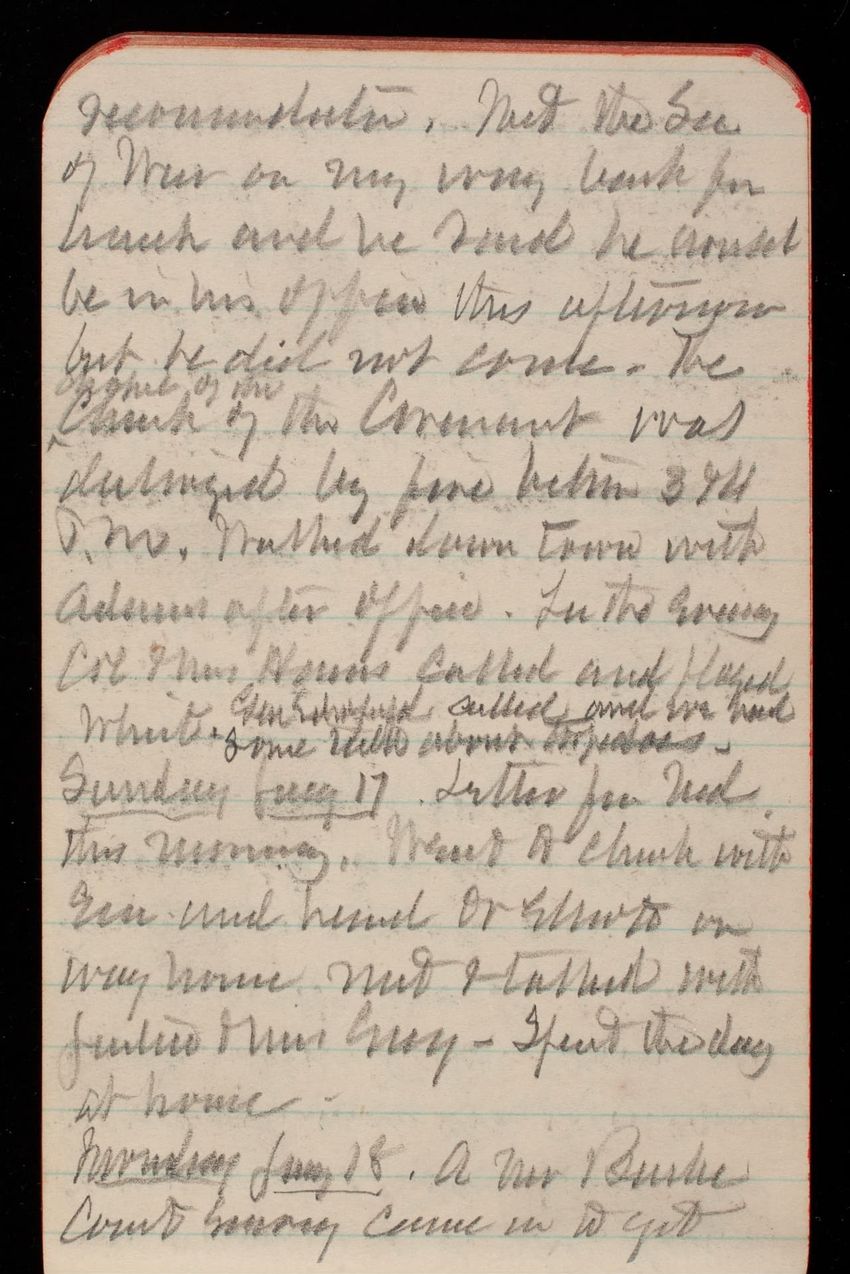 recommendation. Met the Sec
of War on my way back from
lunch and he said he would
be in his office this afternoon
but he did not come. The
chapel of the
Church of the Covenant was
destroyed by fire between 3 & 4
P.M. Walked down town with
Adams after office. In the Evening
Col & Mrs called and played
Whist. Gen called and we had
some talk about torpedoes.
Sunday Jany 17. Letter from Ned
this morning. Went to church with
Gen and heard Dr Elliott on
way home met & talked with
Justice & Mrs Gray - Spent the day
at home -
Monday Jany 18. A Mr Burke
Court came in to get